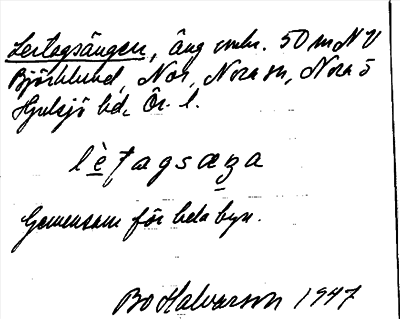 Lertagsängen, äng omkr. 50 m NV
Björklund, Nor, Nora sn, Nora o
Hjulsjö bd, Ör. l.
lètagsæŋa
Gemensam för hela byn.
Bo Halvarson 1947